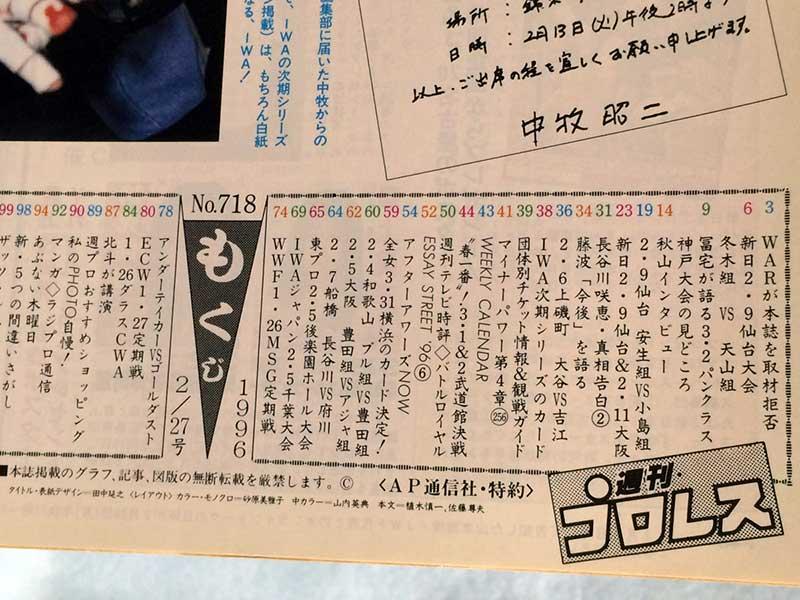 集部に届いた中牧からの
、IWAの次期シリーズ
掲載)は、もちろん白紙
る。IWA!
場所:錦糸
日時:2月13日(火)午後2時より
以上・ご出席の程を宜しくお願い申し上げます。
中牧昭二
3 WARが本誌を取材拒否
6 新日2・9仙台大会
冬木組 VS 天山組
9 冨宅が語る3・2パンクラス
神戸大会の見どころ
14 秋山インタビュー
19 2・9仙台 安生組VS小島組
23 新日2・9仙台&2・11大阪
31 長谷川咲恵・真相告白②
34 藤波「今後」を語る
36 2・6上磯町 大谷VS吉江
38 IWA次期シリーズのカード
39 団体別チケット情報&観戦ガイド
41 マイナーパワー第4章(256)
43 WEEKLY CALENDAR
44 "春一番"!3・1&2武道館決戦
50 週刊テレビ時評◇バトルロイヤル
52 ESSAY STREET '96⑥
54 アフターアワーズNOW
59 全女3・31横浜のカード決定!
60 2・4和歌山 ブル組VS豊田組
62 2・5大阪 豊田組VSアジャ組
64 2・7船橋 長谷川VS府川
65 東プロ2・5後楽園ホール大会
69 IWAジャパン2・5千葉大会
74 WWF1・26MSG定期戦
No.718
もくじ
1996
2/27号
78 アンダーテイカーVS.ゴールダスト
80 ECW1・27定期戦
84 1・26ダラスCWA
87 北斗が講演
89 週プロおすすめショッピング
90 私のPHOTO自慢!
92 マンガ◇ラジプロ通信
94 あぶない木曜日
98 新・5つの間違いさがし
99 ザッツ・
■本誌掲載のグラフ、記事、図版の無断転載を厳禁します。©〈AP通信社・特約〉
タイトル・表紙デザイン=田中延之〈レイアウト〉カラー・モノクロ=砂原美雅子 中カラー=山内英典 本文=植木慎一、佐藤尊夫
週刊・プロレス